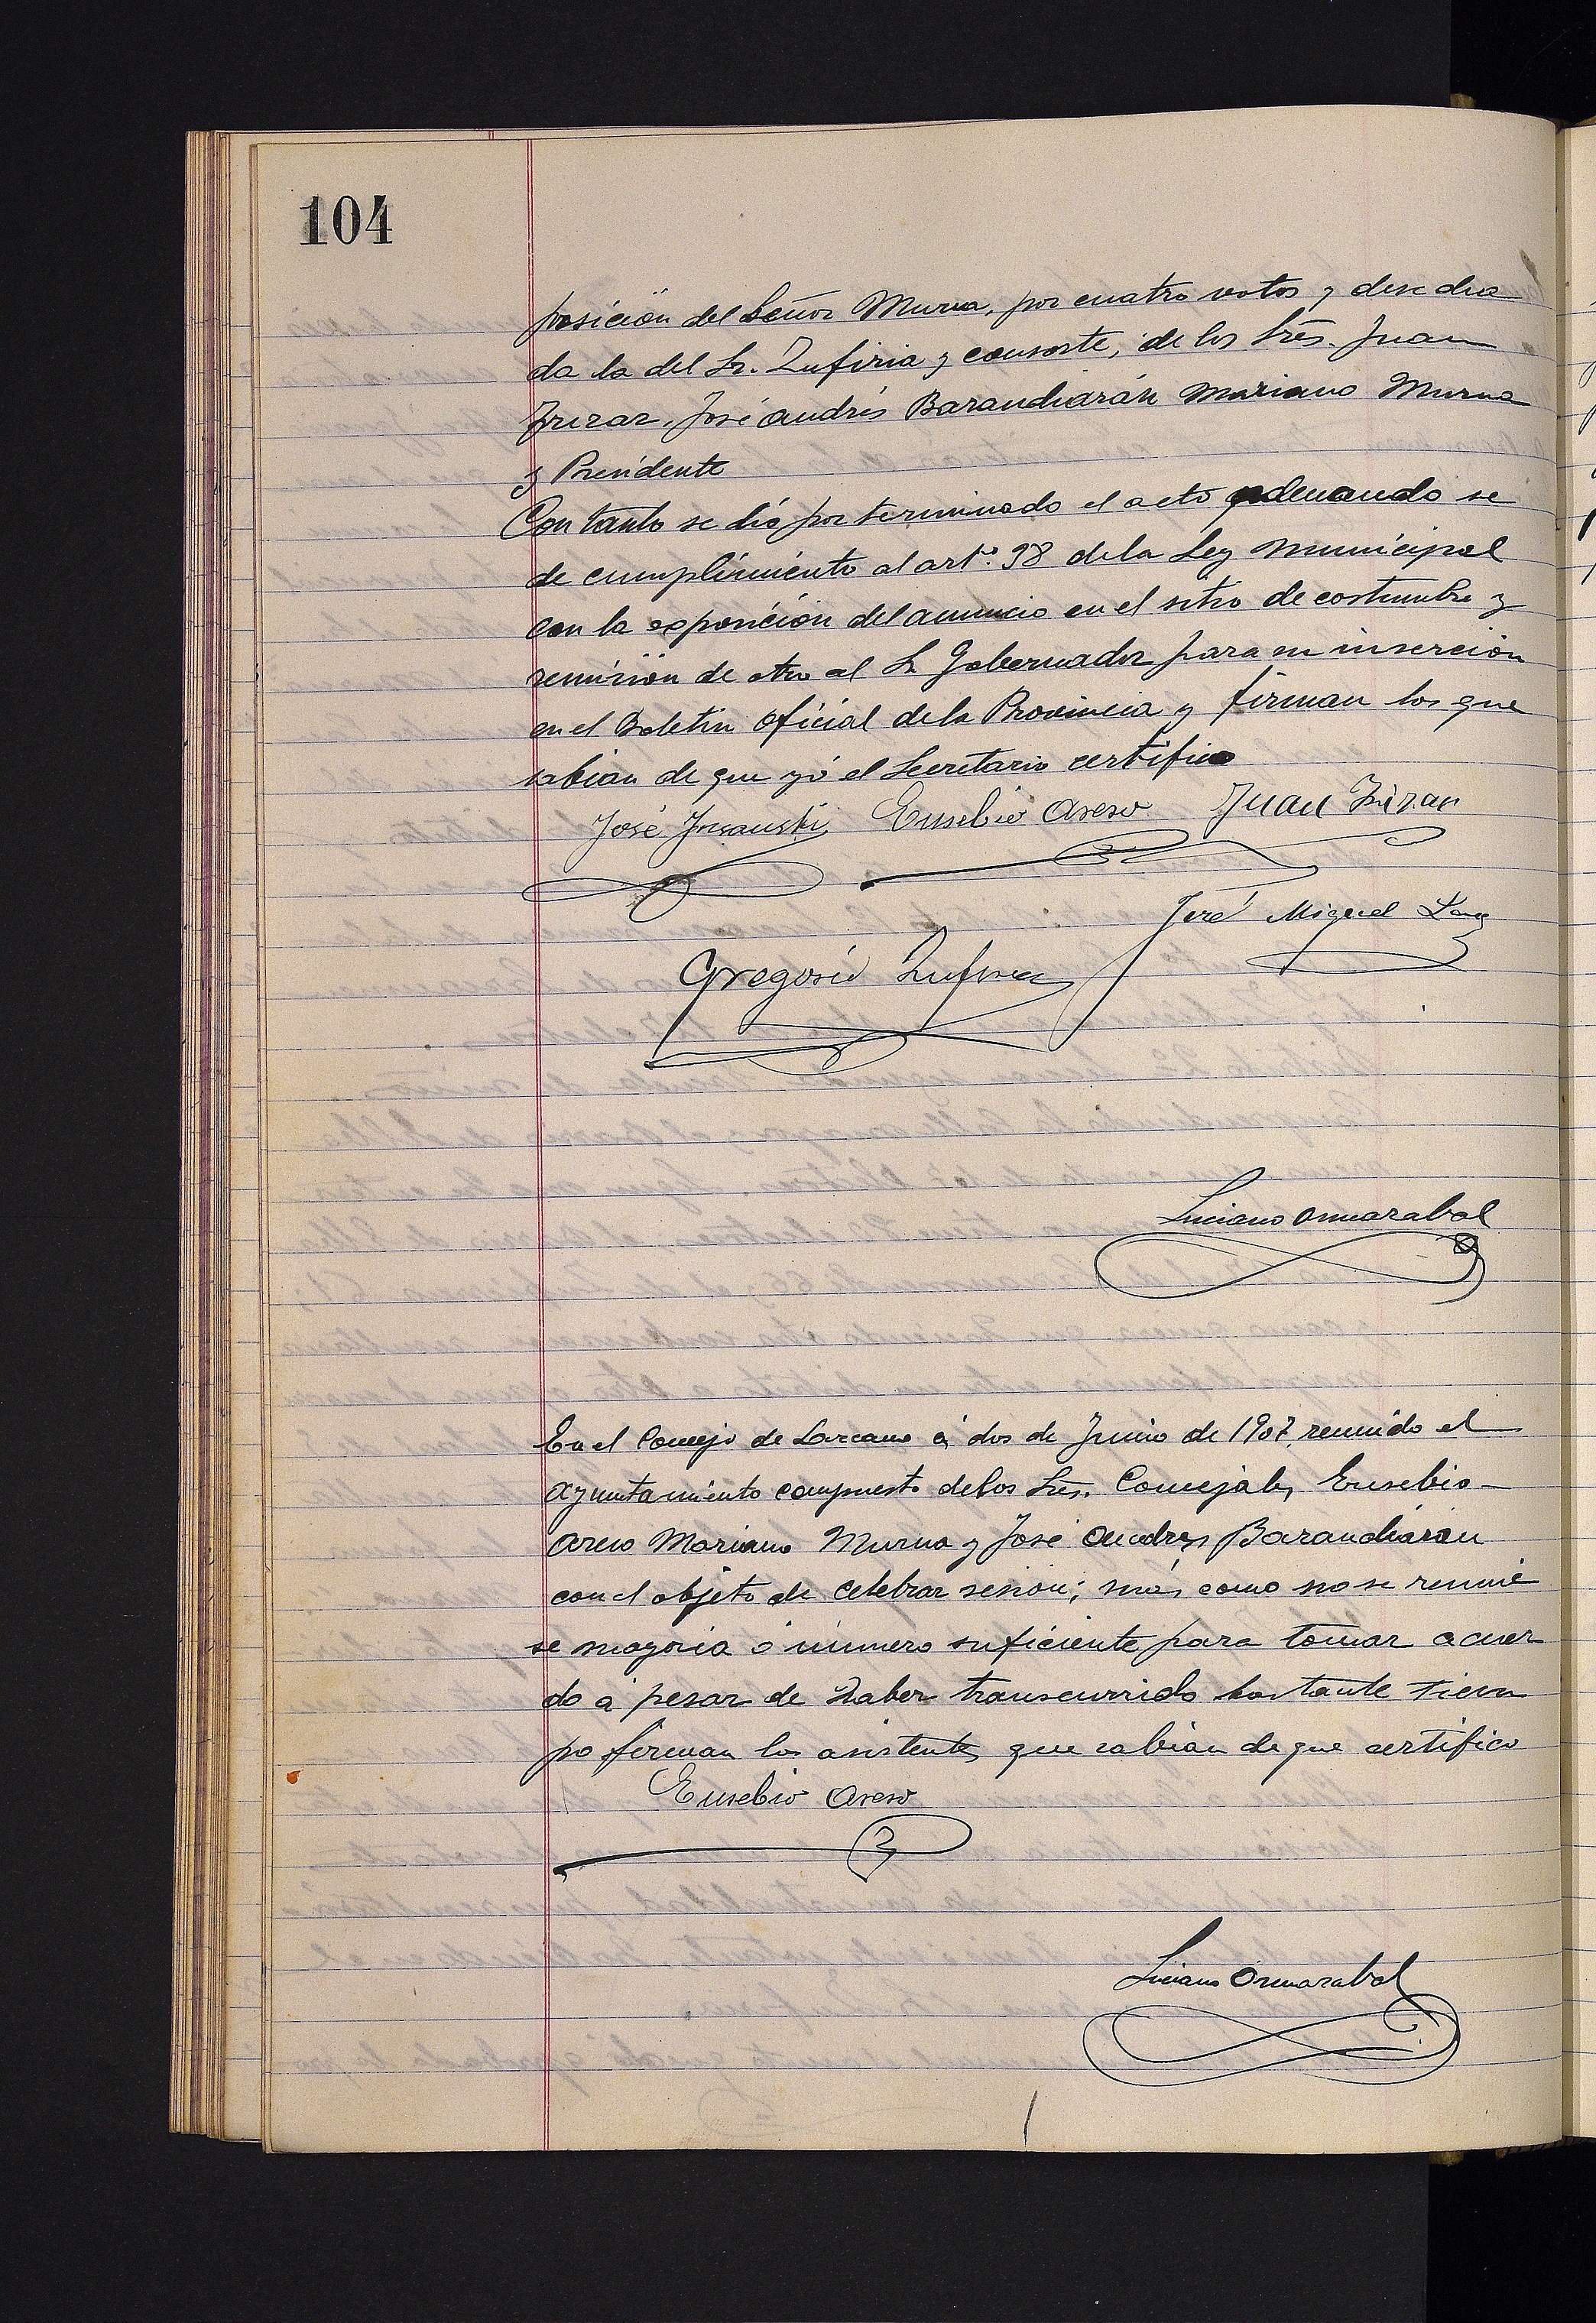 104
posición del Señor Murua, por cuatro votos y desecha
da la del Sr. Zufiria y consorte, de los Sres. Juan
Irizar, José Andrés Barandiarán Mariano Murua
y Presidente
Con tanto se dió por terminado el acto ordenando se
de cumplimiento al artº. 38 de la Ley Municipal
con la exposición del anuncio en el sitio de costumbre y
remisión de otro al Sr Gobernador para su inserción
en el Boletin Oficial de la Provincia y firman los que
sabian de que yó el Secretario certifico
José Insausti Eusebio Aseso Juan Irizar
José Miguel
Gregorio Zufiria
Luciano Ormazabal
En el Concejo de Lazcano á dos de Junio de 1907 reunido el
Ayuntamiento compuesto de los Sres. Concejales Eusebio
Aseso Mariano Murua y José Andres Barandiáran
con el objeto de celebrar sesion; más como no se reunie
se mayoria ó número suficiente para tomar acuer
do á pesar de haber transcurrido bastante tiem
po firman los asistentes que sabian de que certifico
Eusebio Aseso
Luciano Ormazabal